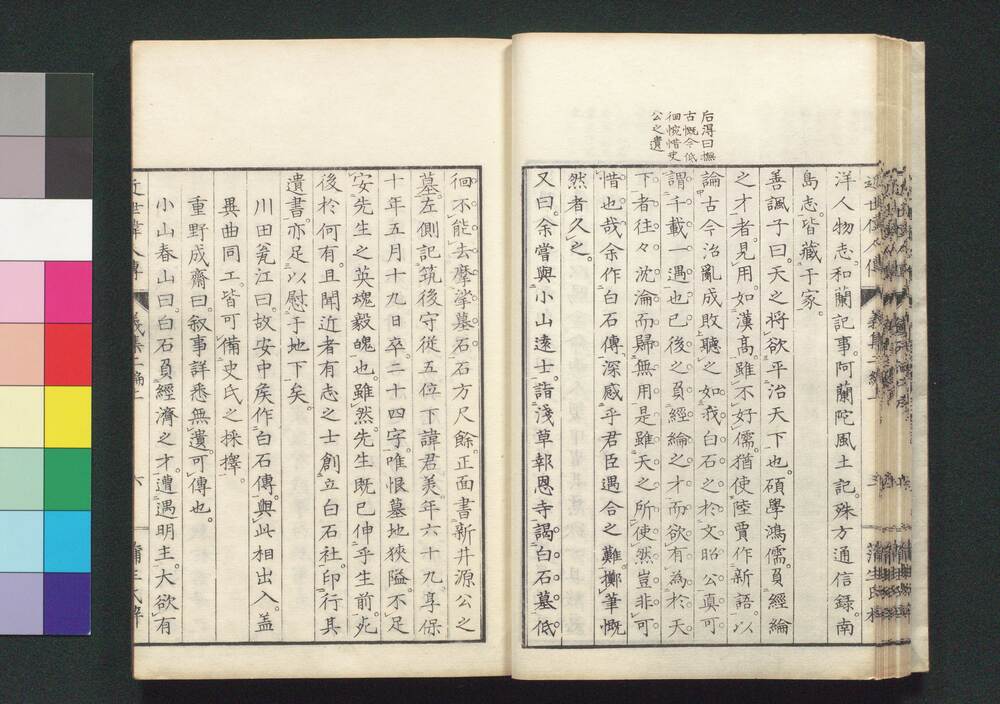 后得曰撫
古慨今低
徊惋惜史
公之遺
洋人物志。和蘭記事。阿蘭陀風土記。殊方通信錄。南
島志。皆藏于家。
善諷子曰。天之將欲平治天下也。碩學鴻儒。負經綸
之才者。見用。如漢高。雖不好儒。猶使陸賈作新語。以
論古今治亂成敗。聽之。如我白石之於文昭公。眞可
謂千載一遇也已。後之負經綸之才。而欲有為於天
下者。往々沈淪而歸無用。是雖天之所使然。豈非可
惜也哉。余作白石傳。深感乎君臣遇合之難。擲筆慨
然者久之。
又曰。余嘗與小山遠士。詣淺草報恩寺。謁白石墓。低
徊不能去。摩挲墓石。石方尺餘。正面書新井源公之
墓。左側記筑後守從五位下諱君美。年六十九。享保
十年五月十九日卒。二十四字。唯恨墓地狹隘。不足
安先生之英魂毅魄也。雖然。先生既已伸乎生前。死
後於何有。且聞近者有志之士。創立白石社。印行其
遺書。亦足以慰于地下矣。
川田甕江曰。故安中矦作白石傳。與此相出入。蓋
異曲同工。皆可備史氏之採擇。
重野成齋曰。叙事詳悉無遺。可傳也。
小山春山曰。白石負經濟之才。遭遇明主。大欲有
近世偉人傳
義集二編上
六
蒲生氏梓